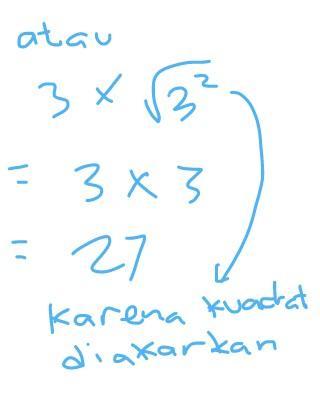 atau
3 × √3²
= 3 × 3
= 27
karena kuadrat
diakarkan